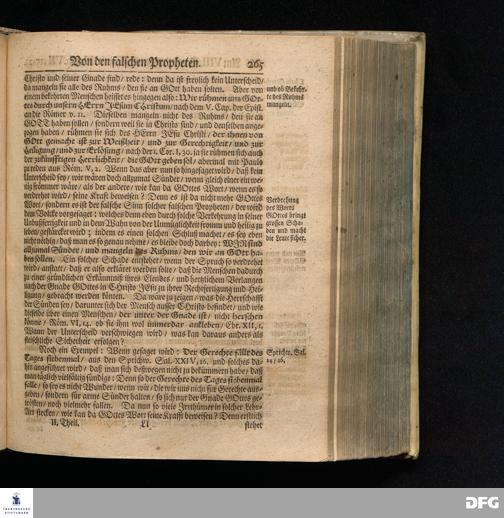 Von den falschen Propheten. 265
Christo und seiner Gnade sind / rede: denn da ist freylich kein Unterscheid /
da mangeln sie alle des Ruhms / den sie an GOtt haben solten. Aber von
einem bekehrten Menschen heisset es hingegen also: Wir rühmen uns GOt-
tes durch unsern HErrn JEsum CHristum / nach dem V. Cap. der Epist.
an die Römer v. 11. Dieselben mangeln nicht des Ruhms / den sie an
GOTT haben sollen / sondern weil sie in Christo sind / und denselben ange-
zogen haben / rühmen sie sich des HErrn JEsu Christi / der ihnen von
GOtt gemacht ist zur Weißheit / und zur Gerechtigkeit / und zur
Heiligung / und zur Erlösung / nach der 1. Cor. I, 30. ja sie rühmen sich auch
der zukünfftigen Herrlichkeit / die GOtt geben sol / abermal mit Paulo
zu reden aus Röm. V, 2. Wenn das aber nun so hingesaget wird / daß kein
Unterscheid sey / wir wären doch allzumal Sünder / wenn gleich einer ein we-
nig frömmer wäre / als der andere / wie kan da GOttes Wort / wenn es so
verdrehet wird / seine Krafft beweisen? Denn es ist da nicht mehr GOttes
Wort / sondern es ist der falsche Sinn solcher falschen Propheten / der wird
dem Volcke vorgesaget: welches denn eben durch solche Verkehrung in seiner
Unbußfertigkeit und in dem Wahn von der Unmügligkeit fromm und heilig zu
leben gestärcket wird; indem es einen solchen Schluß machet / es sey eben
nicht nöthig / daß man es so genau nehme / es bleibe doch darbey: WIR sind
allzumal Sünder / und mangeln des Ruhms / den wir an GOtt ha-
ben sollen. Ein solcher Schade entstehet / wenn der Spruch so verdrehet
wird / anstatt / daß er also erkläret werden solte / daß die Menschen dadurch
zu einer gründlichen Erkänntniß ihres Elendes / und hertzlichem Verlangen
nach der Gnade GOttes in Christo JEsu zu ihrer Rechtfertigung und Hei-
ligung / gebracht werden können. Da wäre zu zeigen / was die Herrschafft
der Sünden sey / darunter sich der Mensch ausser Christo befindet / und wie
dieselbe über einen Menschen / der unter der Gnade ist / nicht herschen
könne / Röm. VI, 14. ob sie ihm wol immerdar anklebe / Ebr. XII, 1.
Wann der Unterscheid verschwiegen wird / was kan daraus anders als
fleischliche Sicherheit erfolgen?
Noch ein Exempel: Wenn gesaget wird: Der Gerechte fälle des
Tages siebenmal / aus den Sprichw. Sal. XXIV, 16. und solches da-
hin angeführet wird / daß man sich deswegen nicht zu bekümmern habe / daß
man täglich vielfältig sündige: Denn so der Gerechte des Tages siebenmal
falle / so sey es nicht Wunder / wenn wir / die wir uns nicht für Gerechte aus-
geben / sondern für arme Sünder halten / so sich nur der Gnade GOttes ge-
trösten / noch vielmehr fallen. Da nun so viele Irrthümer in solcher Lehr-
Art stecken / wie kan da GOttes Wort seine Krafft beweisen? Denn erstlich
II. Theil. Ll stehet
und ob Bekehr-
te des Ruhms
mangeln.
Verdrehung
des Worts
GOttes bringt
grossen Scha-
den und macht
die Leute sicher.
Sprichw. Sal.
24/16.
FRANCKESCHE
STIFTUNGEN
DFG